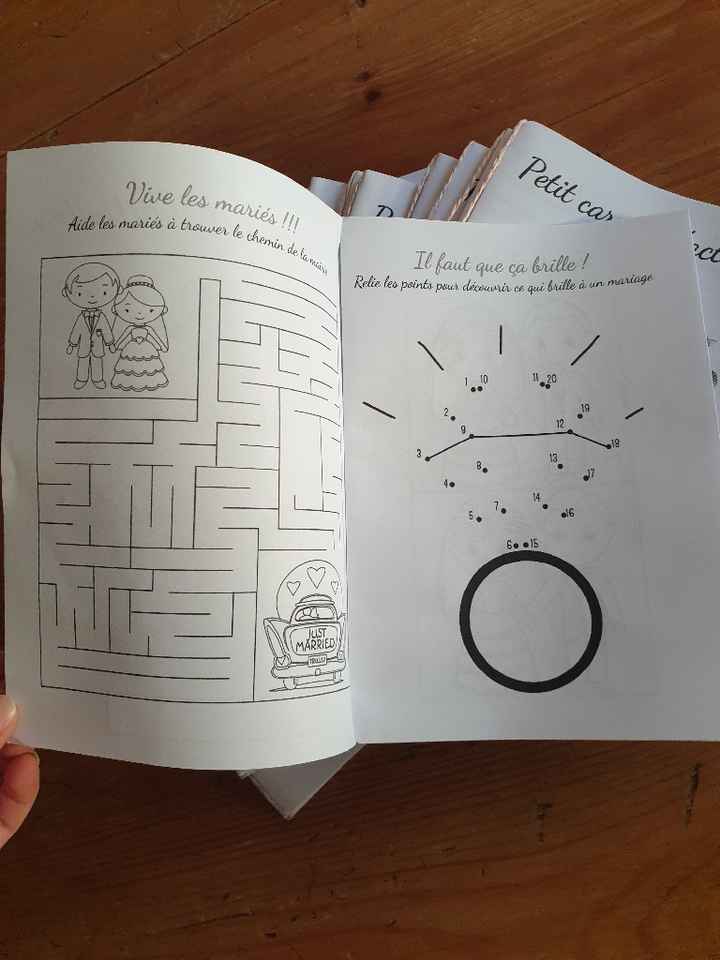 Vive les mariés !!!
Aide les mariés à trouver le chemin de la mairie
JUST
MARRIED
Il faut que ça brille !
Relie les points pour découvrir ce qui brille à un mariage
1 10 11 20
2 19
9 12
3 18
8 13
4 17
7 14
5 16
6 15
Petit